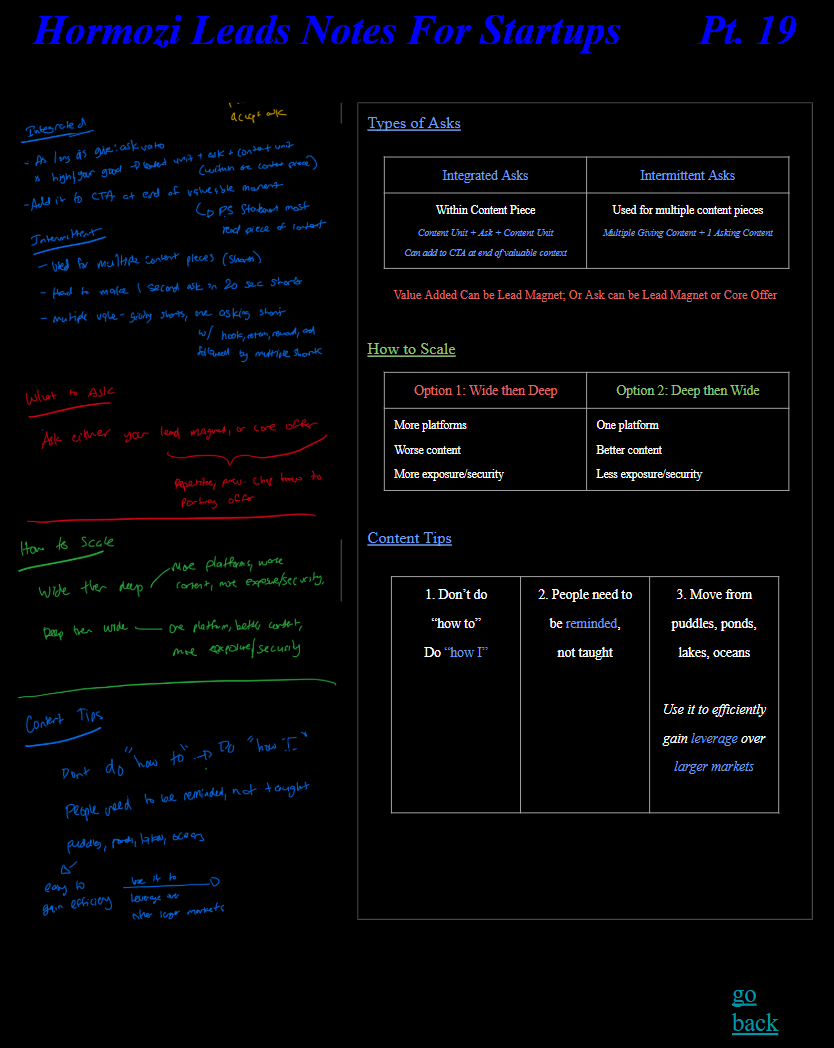 Hormozi Leads Notes For Startups Pt. 19
accept ask
Integrated
- As long as give:ask ratio
is high/your good → content unit + ask + content unit
(within one content piece)
- Add it to CTA at end of valuable moment
↳ P.S Statement most
read piece of content
Intermittent
- Used for multiple content pieces (shorts)
- Hard to make 1 second ask in 20 sec shorts
- multiple - giving shorts, one asking short
w/ hook, retain, reward, and
followed by multiple shorts
What to Ask
Ask either your lead magnet, or core offer
Repetitive, prev. to
offer
How to Scale
Wide then deep
More platforms, worse
content, more exposure/security,
Deep then wide
One platform, better content,
more exposure/security
Content Tips
Dont do "how to" → Do "how I"
People need to be reminded, not taught
puddles, ponds, lakes, oceans
easy to
gain efficiency
Use it to
leverage
larger markets
Types of Asks
Integrated Asks
Intermittent Asks
Within Content Piece
Used for multiple content pieces
Content Unit + Ask + Content Unit
Multiple Giving Content + 1 Asking Content
Can add to CTA at end of valuable context
Value Added Can be Lead Magnet; Or Ask can be Lead Magnet or Core Offer
How to Scale
Option 1: Wide then Deep
Option 2: Deep then Wide
More platforms
One platform
Worse content
Better content
More exposure/security
Less exposure/security
Content Tips
1. Don't do
"how to"
Do "how I"
2. People need to
be reminded,
not taught
3. Move from
puddles, ponds,
lakes, oceans
Use it to efficiently
gain leverage over
larger markets
go
back